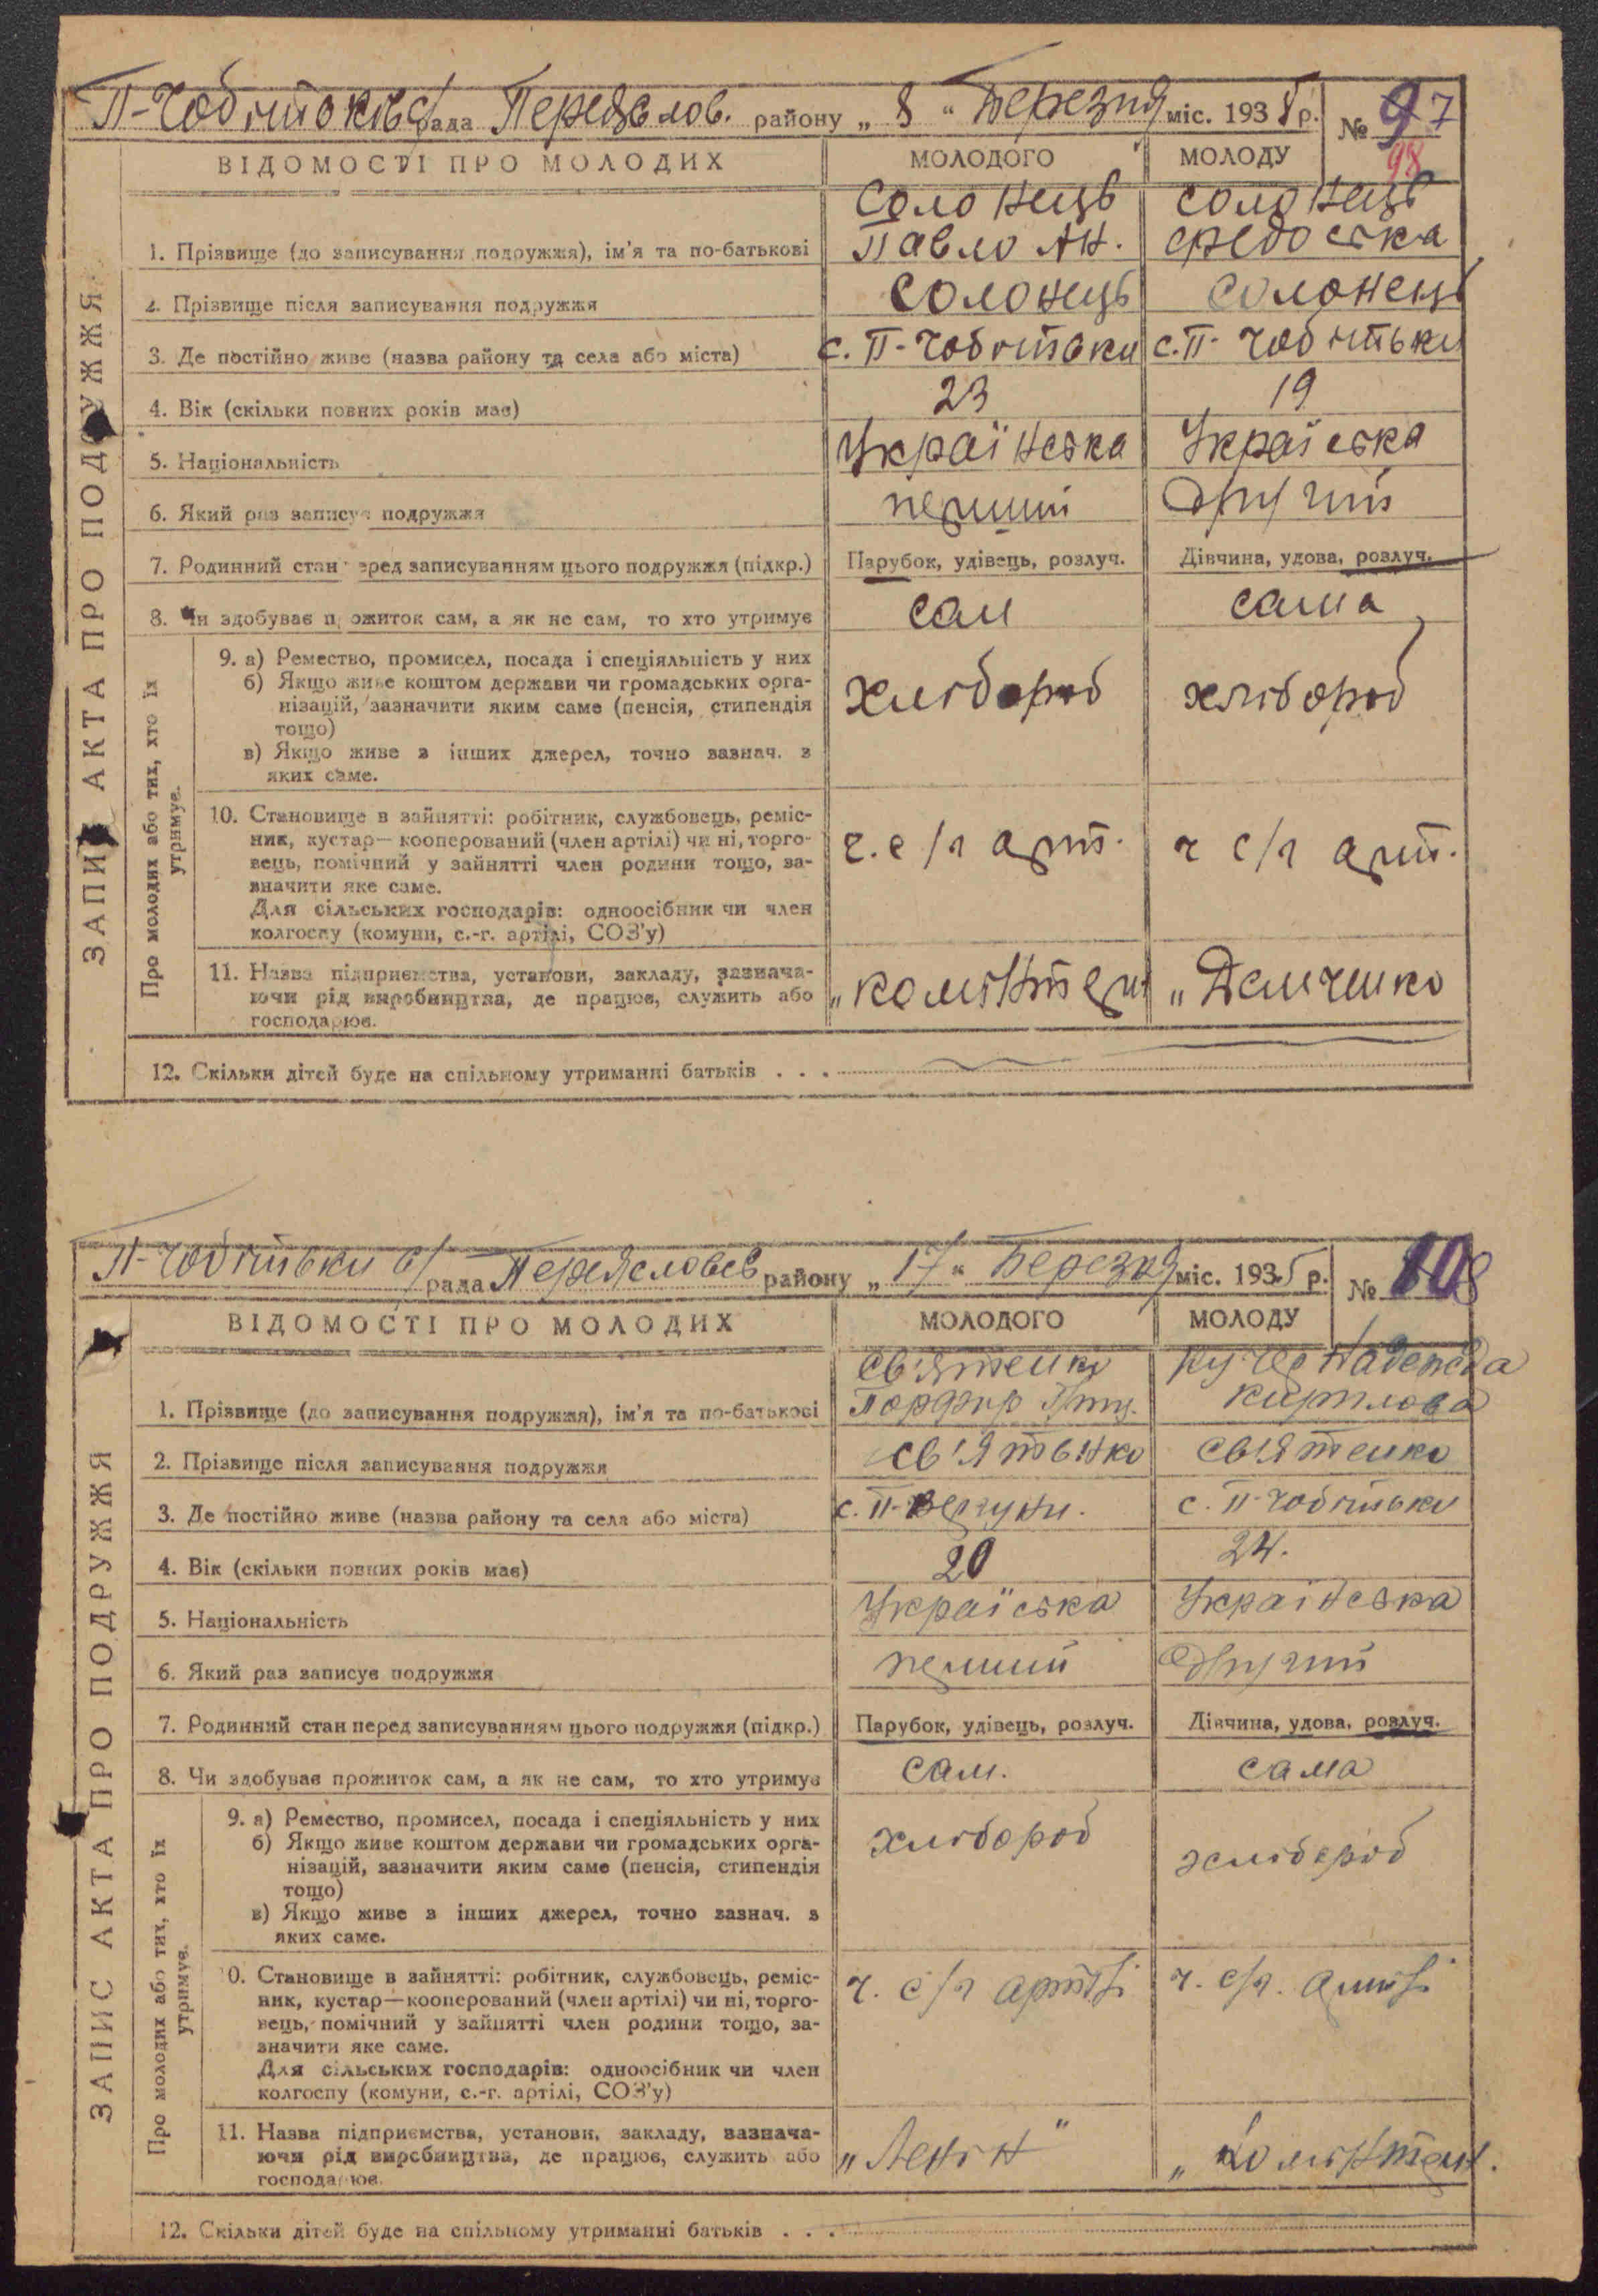 П-Чобітокв с/рада Переяслов. району „ 8 “ Березня міс. 1935 р. № 97
98
ВІДОМОСТІ ПРО МОЛОДИХ МОЛОДОГО МОЛОДУ
ЗАПИС АКТА ПРО ПОДРУЖЖЯ
1. Прізвище (до записування подружжя), ім'я та по-батькові Солонець Павло Ан. Солонець Федоська
2. Прізвище після записування подружжя Солонець Солонець
3. Де постійно живе (назва району та села або міста) с. П-Чобітьки с. П-Чобітьки
4. Вік (скільки повних років має) 23 19
5. Національність Українська Украіська
6. Який раз записує подружжя перший другий
7. Родинний стан перед записуванням цього подружжя (підкр.) Парубок, удівець, розлуч. Дівчина, удова, розлуч.
8. Чи здобуває прожиток сам, а як не сам, то хто утримує сам сама
Про молодих або тих, хто їх утримує.
9. а) Ремество, промисел, посада і спеціяльність у них
б) Якщо живе коштом держави чи громадських орга-
нізацій, зазначити яким саме (пенсія, стипендія хлібороб хлібороб
тощо)
в) Якщо живе з інших джерел, точно зазнач. з
яких саме.
10. Становище в зайнятті: робітник, службовець, реміс-
ник, кустар—кооперований (член артілі) чи ні, торго- ч. с/г арт. ч с/г арт.
вець, помічний у зайнятті член родини тощо, за-
значити яке саме.
Для сільських господарів: одноосібник чи член
колгоспу (комуни, с.-г. артілі, СОЗ'у)
11. Назва підприємства, установи, закладу, зазнача-
ючи рід виробництва, де працює, служить або „Комінтерн „Демченко
господарює.
12. Скільки дітей буде на спільному утриманні батьків . . .
П-Чобітьки с/рада Переяславсв району „ 17 “ Березня міс. 1935 р. № 108
ВІДОМОСТІ ПРО МОЛОДИХ МОЛОДОГО МОЛОДУ
ЗАПИС АКТА ПРО ПОДРУЖЖЯ
1. Прізвище (до записування подружжя), ім'я та по-батькові Св'ятенко Порфир Надежда Кирилова
2. Прізвище після записування подружжя Св'ятенко Св'ятенко
3. Де постійно живе (назва району та села або міста) с. П-Вергуни. с. П-Чобітьки
4. Вік (скільки повних років має) 20 24.
5. Національність Украіська Українська
6. Який раз записує подружжя перший другий
7. Родинний стан перед записуванням цього подружжя (підкр.) Парубок, удівець, розлуч. Дівчина, удова, розлуч.
8. Чи здобуває прожиток сам, а як не сам, то хто утримує сам. сама
Про молодих або тих, хто їх утримує.
9. а) Ремество, промисел, посада і спеціяльність у них
б) Якщо живе коштом держави чи громадських орга- хлібороб хлібороб
нізацій, зазначити яким саме (пенсія, стипендія
тощо)
в) Якщо живе з інших джерел, точно зазнач. з
яких саме.
10. Становище в зайнятті: робітник, службовець, реміс-
ник, кустар—кооперований (член артілі) чи ні, торго- ч. с/г артілі ч. с/г. артілі
вець, помічний у зайнятті член родини тощо, за-
значити яке саме.
Для сільських господарів: одноосібник чи член
колгоспу (комуни, с.-г. артілі, СОЗ'у)
11. Назва підприємства, установи, закладу, зазнача-
ючи рід виробництва, де працює, служить або „Ленін“ „Комінтерн.
господарює.
12. Скільки дітей буде на спільному утриманні батьків . . .